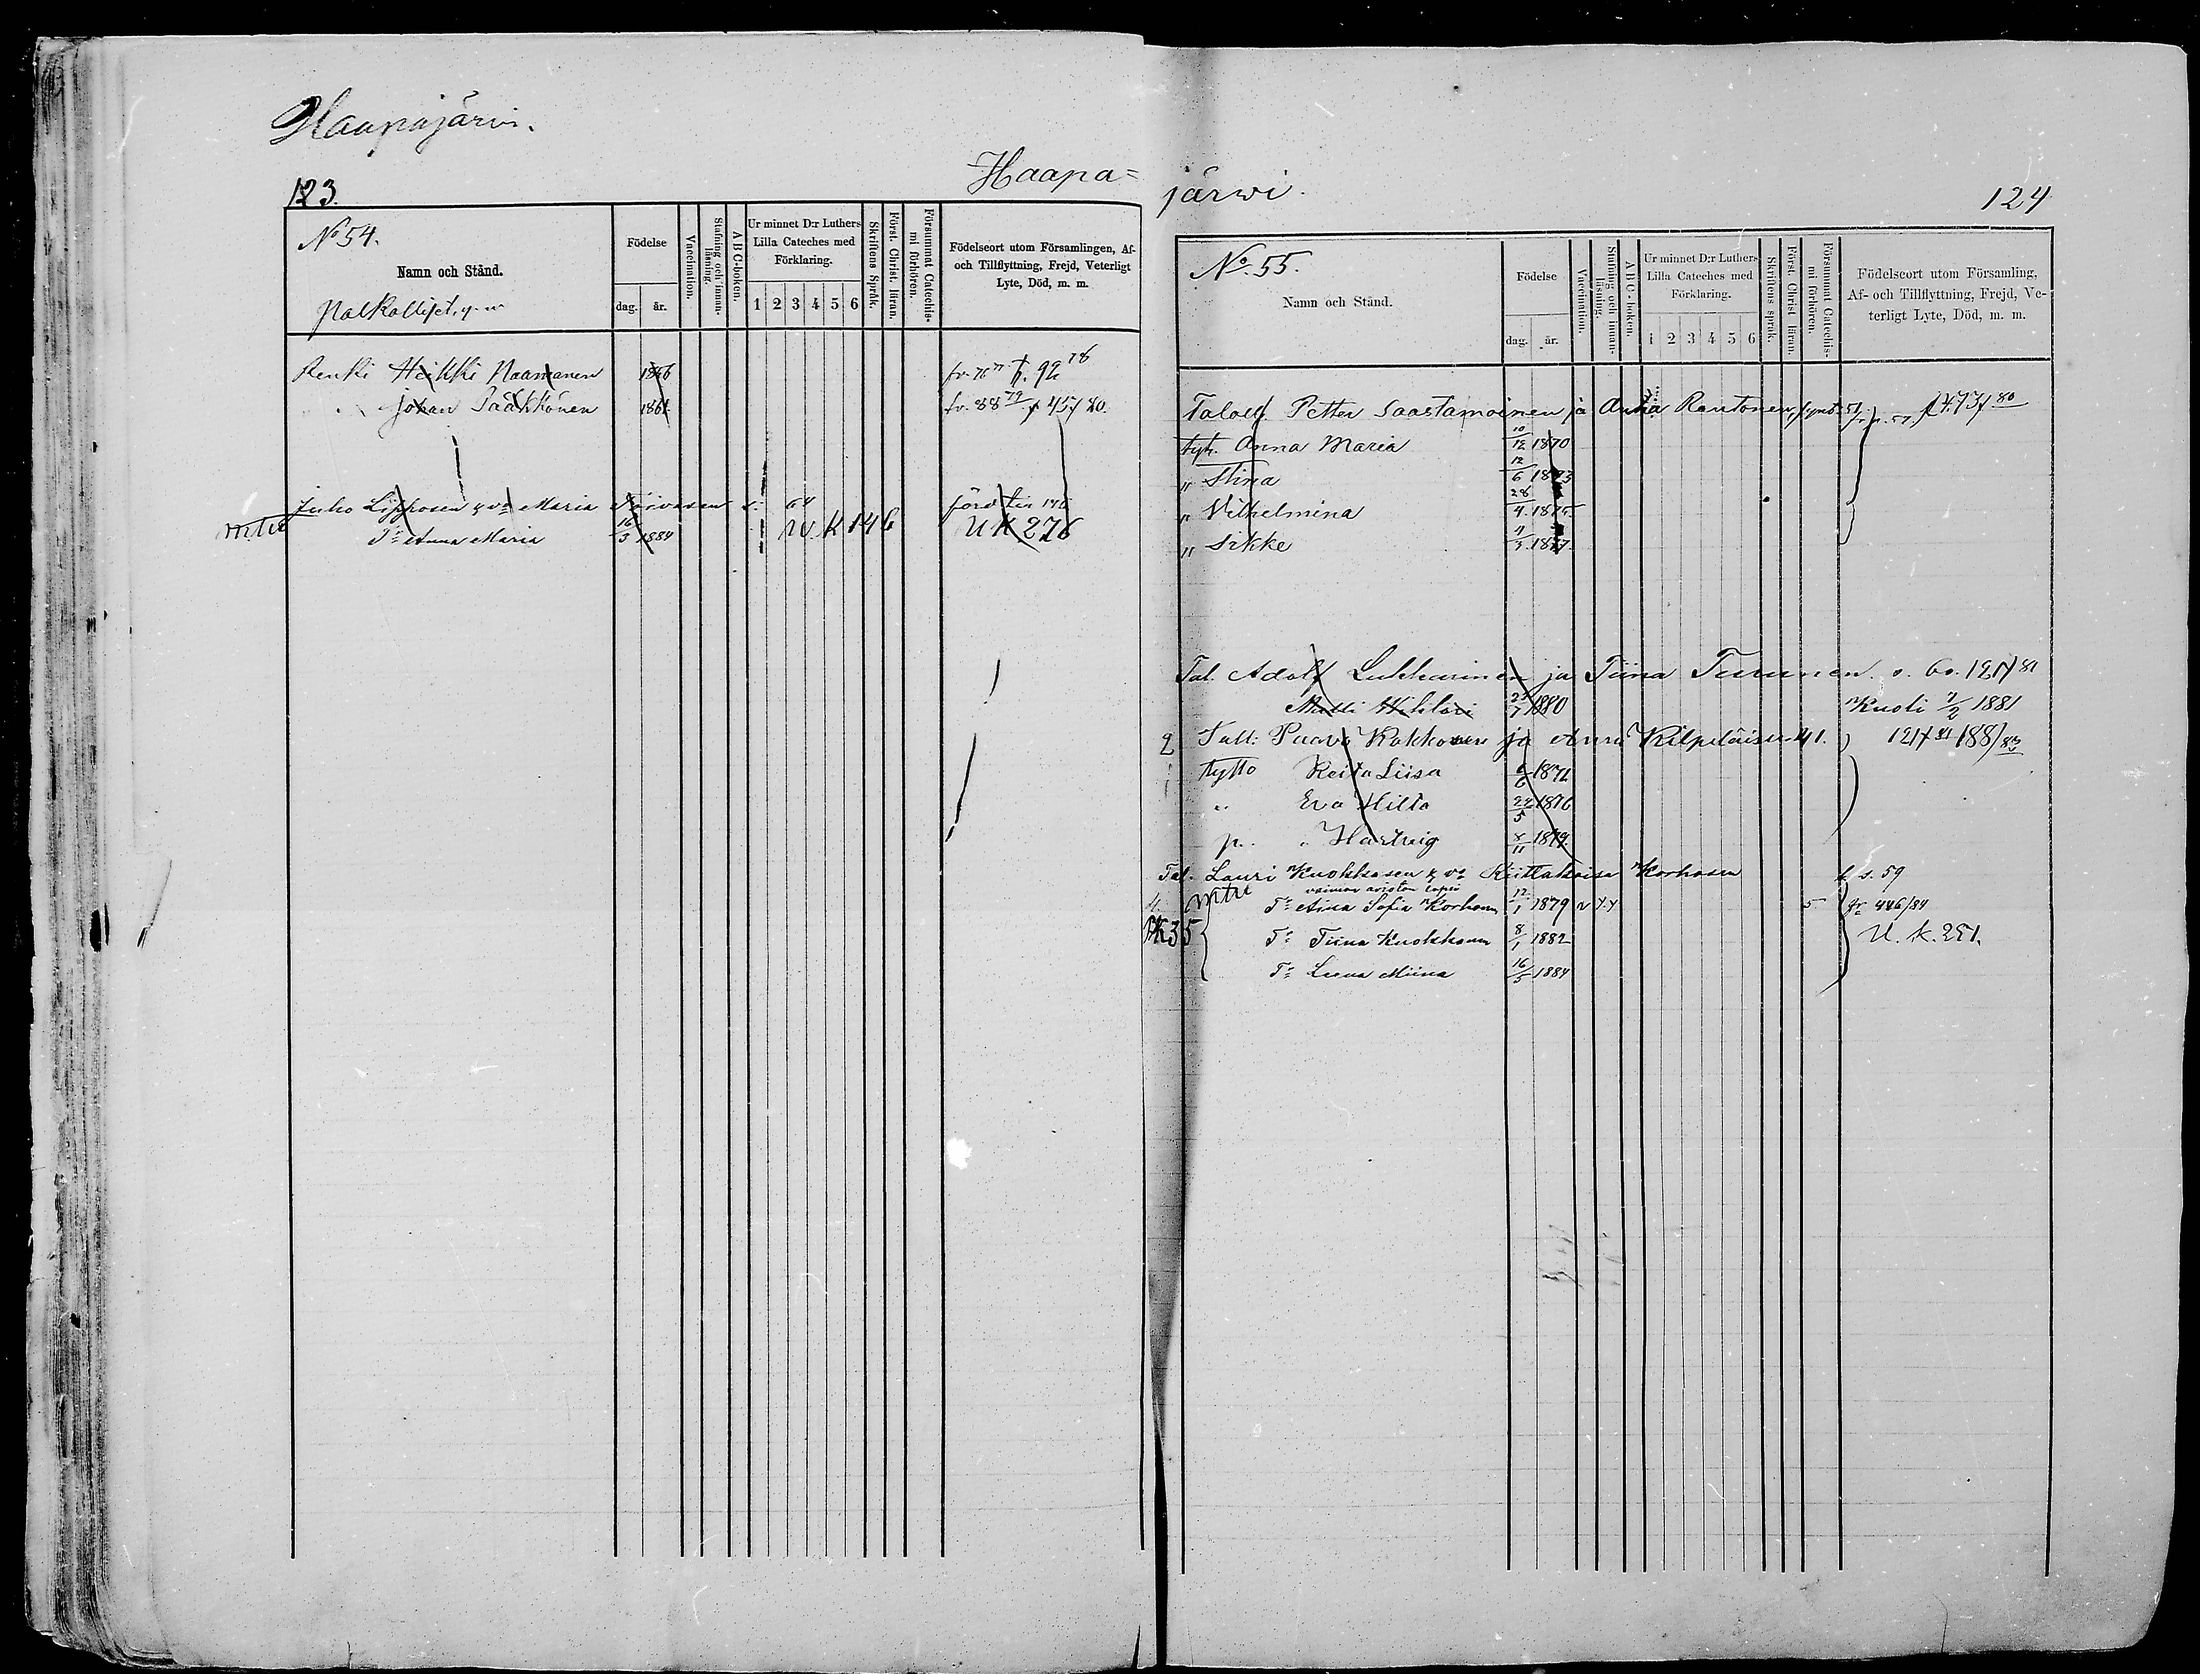 Haapajärvi.
Haapa=
123.
No 54.
Namn och Stånd.
Palkolliset, y. m
Födelse
dag. år.
Vaccination.
Stafning och innan-läsning.
ABC-boken.
Ur minnet D:r Luthers Lilla Cateches med Förklaring.
1 2 3 4 5 6
Skriftens Språk.
Först. Christ. läran.
Försummat Catechis-mi förhören.
Födelseort utom Församlingen, Af- och Tillflyttning, Frejd, Veterligt Lyte, Död, m. m.
Renki Heikki Naamanen 1856 fr. 76 77 f. 92 78
" Johan Pääkkönen 1861. fr. 88 79 f 457 80.
Juho Lipposen & vo Maria s: 64 146
mtu Tr Anna Maria 16/3 1884 W. K 146 UK 276
järwi.
124
No. 55.
Namn och Stånd.
Födelse
dag. år.
Vaccination.
Stafning och innan-läsning.
ABC-boken.
Ur minnet D:r Luthers Lilla Cateches med Förklaring.
1 2 3 4 5 6
Skriftens språk.
Först. Christ läran.
Försummat Catechis-mi förhören.
Födelseort utom Församling, Af- och Tillflyttning, Frejd, Ve-terligt Lyte, Död, m. m.
Petter Saastamoinen ja Anna Rautonen, 51. f. 473/80
tyt. Anna Maria 10/12 1870
" Stina 12/6 1873
" Vilhelmina 28/4 1875
" Sikke 1877.
Tal. Adolf Lukkarinen ja Tiina Turunen. s. 60. 121/81
Matti Wihtori 1880 Kuoli 7/2 1881
2 Paavo Kokkonen ja Anna Kilpeläisen 41. 121/81 188/83
tyttö Reita Liisa 1872
" Eva Hilta 24/5 1876
p. " Hartvig 8/11 1879.
Tal. Lauri Kuokkasen & vo Riittakaisa Korhosen k. s. 59
vaimon avioton lapsi
4. mtu Tr Aina Sofia Korhonen 12/1 1879 v y. y 5 fr 446/84
RK35 Tr Tiina Kuokkanen 8/1 1882 U. K. 251.
Tr Leena Miina 16/5 1884